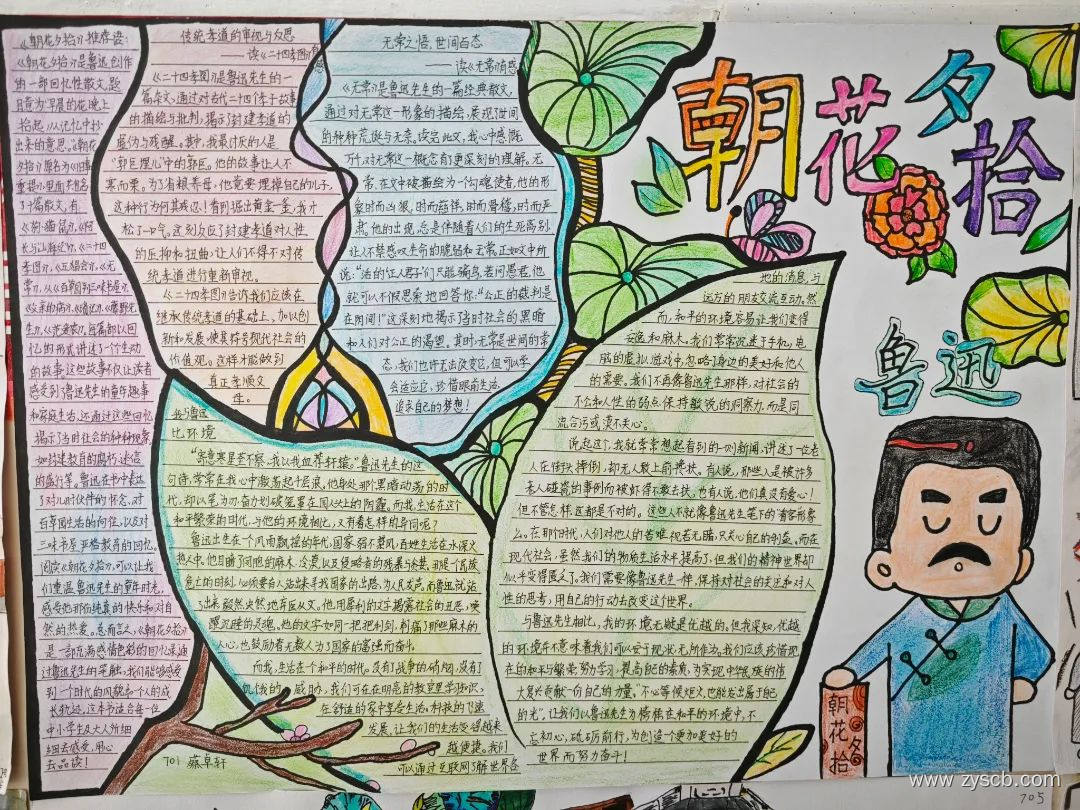 朝花夕拾
鲁迅
《朝花夕拾》推荐语:
《朝花夕拾》是鲁迅创作
的一部回忆性散文,题
目意为早晨的花晚上
拾起,从记忆中抄
出来的意思。《朝花
夕拾》原名为《旧事
重提》,里面共包含
了十篇散文,有
《狗·猫·鼠》、《阿
长与山海经》、《二十四
孝图》、《五猖会》、《无
常》、从《百草园到三味书屋》、
《父亲的病》、《琐记》、《藤野先
生》、《范爱农》,每篇都以回
忆的形式讲述了个生动
的故事,让这些故事不仅让读者
感受到鲁迅先生的童年趣事
和家庭生活,还通过这些回忆
揭示了当时社会的种种现象
如封建教育的腐朽、迷信
的盛行等。鲁迅在书中表达
了对儿时伙伴的怀念,对
百草园生活的向往,以及对
三味书屋严格教育的回忆。
阅读《朝花夕拾》,可以让我
们重温鲁迅先生的童年时光,
感受他那份纯真的快乐和对自
然的热爱。总而言之,《朝花夕拾》
是一部充满感情色彩的回忆录,通
过鲁迅先生的笔触,我们能够感受
到一个时代的风貌和一个人的成
长轨迹,这本书适合每一位
中小学生及大人仔细
细回去感受,用心
去品读!
传统孝道的审视与反思
——读《二十四孝图》有感
《二十四孝图》是鲁迅先生的一
篇杂文,通过对古代二十四个孝子故事
的描绘与批判,揭示了封建孝道的
虚伪与残酷。其中,我最讨厌的人是
“郭巨埋儿”中的郭巨。他的故事让人不
寒而栗。为了省粮养母,他竟要埋掉自己的儿子,
这种行为何其残忍!看到掘出黄金一釜,我才
松了一口气,这刻反应了封建孝道对人性
的压抑和扭曲,让人们不得不对传
统孝道进行重新审视。
《二十四孝图》告诉我们应该在
继承传统孝道的基础上,加以创
新和发展,使其符合现代社会的
价值观。这样才能做到
真正孝顺父
母。
无常之悟,世间百态
——读《无常》有感
《无常》是鲁迅先生的一篇经典散文,
通过对无常这一形象的描绘,展现了世间
的种种荒诞与无奈。读完此文,我心中感慨
万千,对无常这一概念有了更深刻的理解。无
常,在文中被描绘为一个勾魂使者,他的形
象时而凶狠,时而慈祥,时而滑稽,时而严
肃。他的出现,总是伴随着人们的生死离别,
让人不禁感叹生命的脆弱和无常,正如文中所
说:“活的‘正人君子’们只能骗鸟,若问愚民,他
就可以不假思索地回答你:“公正的裁判是
在阴间!””这深刻地揭示了当时社会的黑暗
和人们对公正的渴望。其时,无常是世间的常
态,我们也许无法改变它,但可以学
会适应它,珍惜眼前生活,
追求自己的梦想!
我与鲁迅
比环境
“寄意寒星荃不察,我以我血荐轩辕。”鲁迅先生的这
句诗,常常在我心中激荡起千层浪,他身处那个黑暗动荡的时
代,却以笔为刀,奋力划破笼罩在国人头上的阴霾。而我,生活在这个
和平繁荣的时代,与他的环境相比,又有着怎样的异同呢?
鲁迅出生在个风雨飘摇的年代,国家弱不禁风,百姓生活在水深火
热之中。他目睹了同胞的麻木、冷漠,以及侵略者的残暴与贪婪。那是个民族
危亡的时刻,必须要有人站出来寻找国家的出路,为人民发声。而鲁迅就站
了出来,毅然决然地弃医从文。他用犀利的文字揭露社会的丑恶,唤
醒沉睡的灵魂。他的文字如同一把把利剑,刺痛了那些麻木的
人心,也鼓励着无数人为了国家的富强而奋斗。
而我,生活在个和平的时代。没有了战争的硝烟,没有了
饥饿的威胁,我们可在在明亮的教室里学习知识,
在舒适的家中享受生活。科技的飞速
发展,让我们的生活变得越来
越便捷。我们
可以通过互联网了解世界各
地的消息,与
远方的朋友交流互动。然
而,和平的环境容易让我们变得
安逸和麻木。我们常常沉迷于手机,电
脑的虚拟游戏中,忽略了身边的美好和他人
的需要。我们不再像鲁迅先生那样,对社会的
不公和人性的弱点保持敏锐的洞察力,而是同
流合污或漠不关心。
说起这个,我就常常想起看到的一则新闻,讲述了一位老
人在街头摔倒,却无人敢上前搀扶。有人说,那些人是被许多
老人碰瓷的事例而被吓得不敢去扶,也有人说,他们真没有爱心!
但不管怎样,这都是不对的。这些人不就像鲁迅先生笔下的“看客形象
么。在那个时代,人们对他人的苦难视若无睹,只关心自己的利益。而在
现代社会,虽然我们的物质生活水平提高了,但我们的精神世界却
似乎变得匮乏了。我们需要像鲁迅先生一样,保持对社会的关注和对人
性的思考,用自己的行动去改变这个世界。
与鲁迅先生相比,我的环境无疑是优越的。但我深知,优越
的环境并不意味着我们可以安于现状,无所作为。我们应该珍惜现
在的和平与繁荣,努力学习,提高自己的素质,为实现中华民族的伟
大复兴贡献一份自己的力量。“不必等候炬火,也能发出属于自己
的光”。让我们以鲁迅先生为榜样,在和平的环境中,不
忘初心,砥砺前行,为创造个更加美好的
世界而努力奋斗!
701 蔡卓轩
朝花夕拾
www.zyscb.com
705